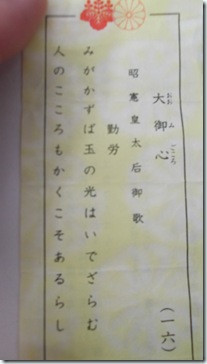 （一六）
大御心
おおみごころ
昭憲皇太后御歌
勤労
みがかずば玉の光はいでざらむ
人のこころもかくこそあるらし